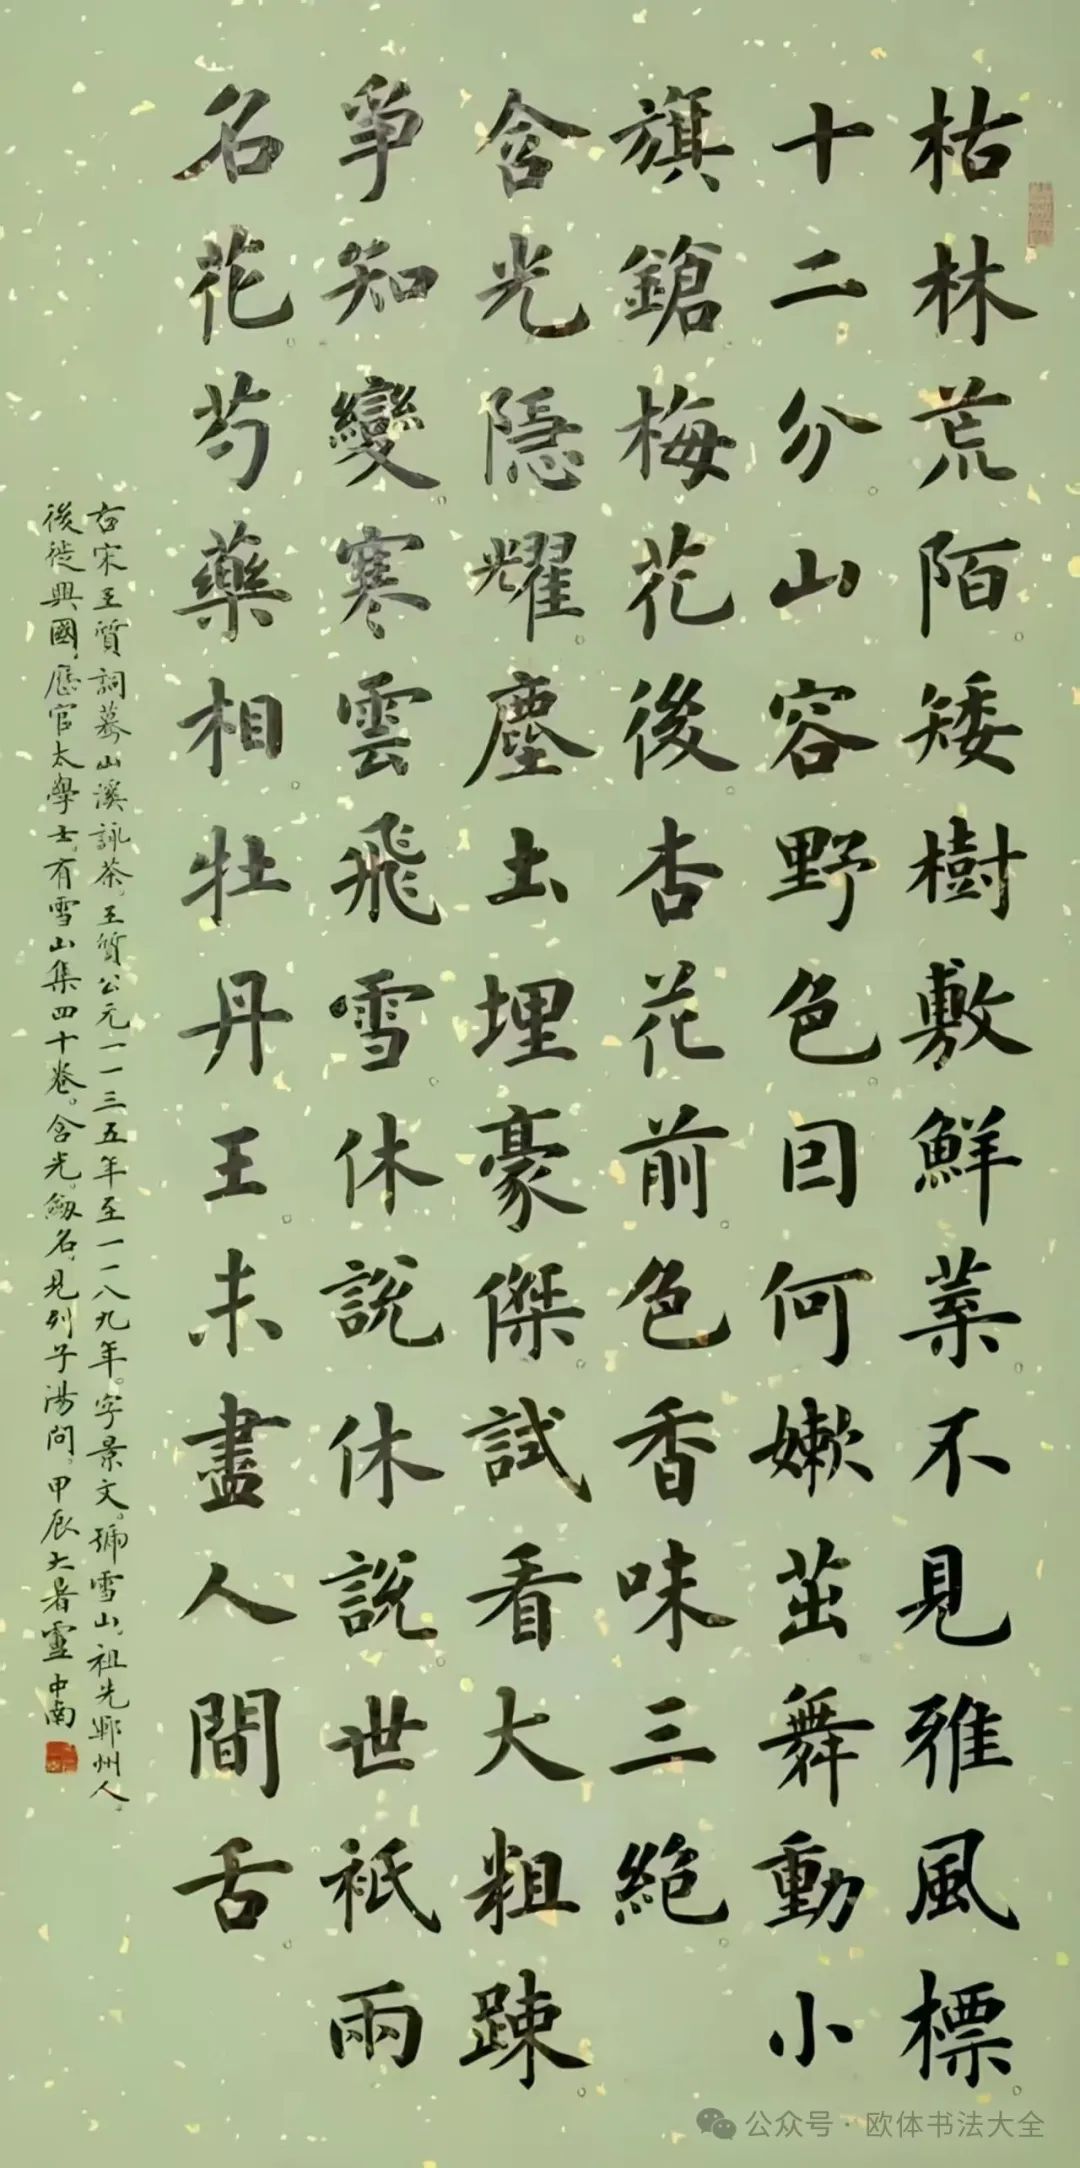 枯林荒陌矮樹敷鮮葉不見雅風標
十二分山容野色回何嫩茁舞動小
旗鎗梅花後杏花前色香味三絕
含光隱耀塵土埋豪傑試看大粗踈
爭知變寒雲飛雪休說休說世衹兩
名花芍藥相牡丹王未盡人間舌
右宋王質詞驀山溪詠茶王質公元一一三五年至一一八九年。字景文。號雪山祖先鄆州人。
後徙興國歷官太學士有雪山集四十卷。含光劔名見列子湯問。甲辰大暑盧中南
公众号·欧体书法大全